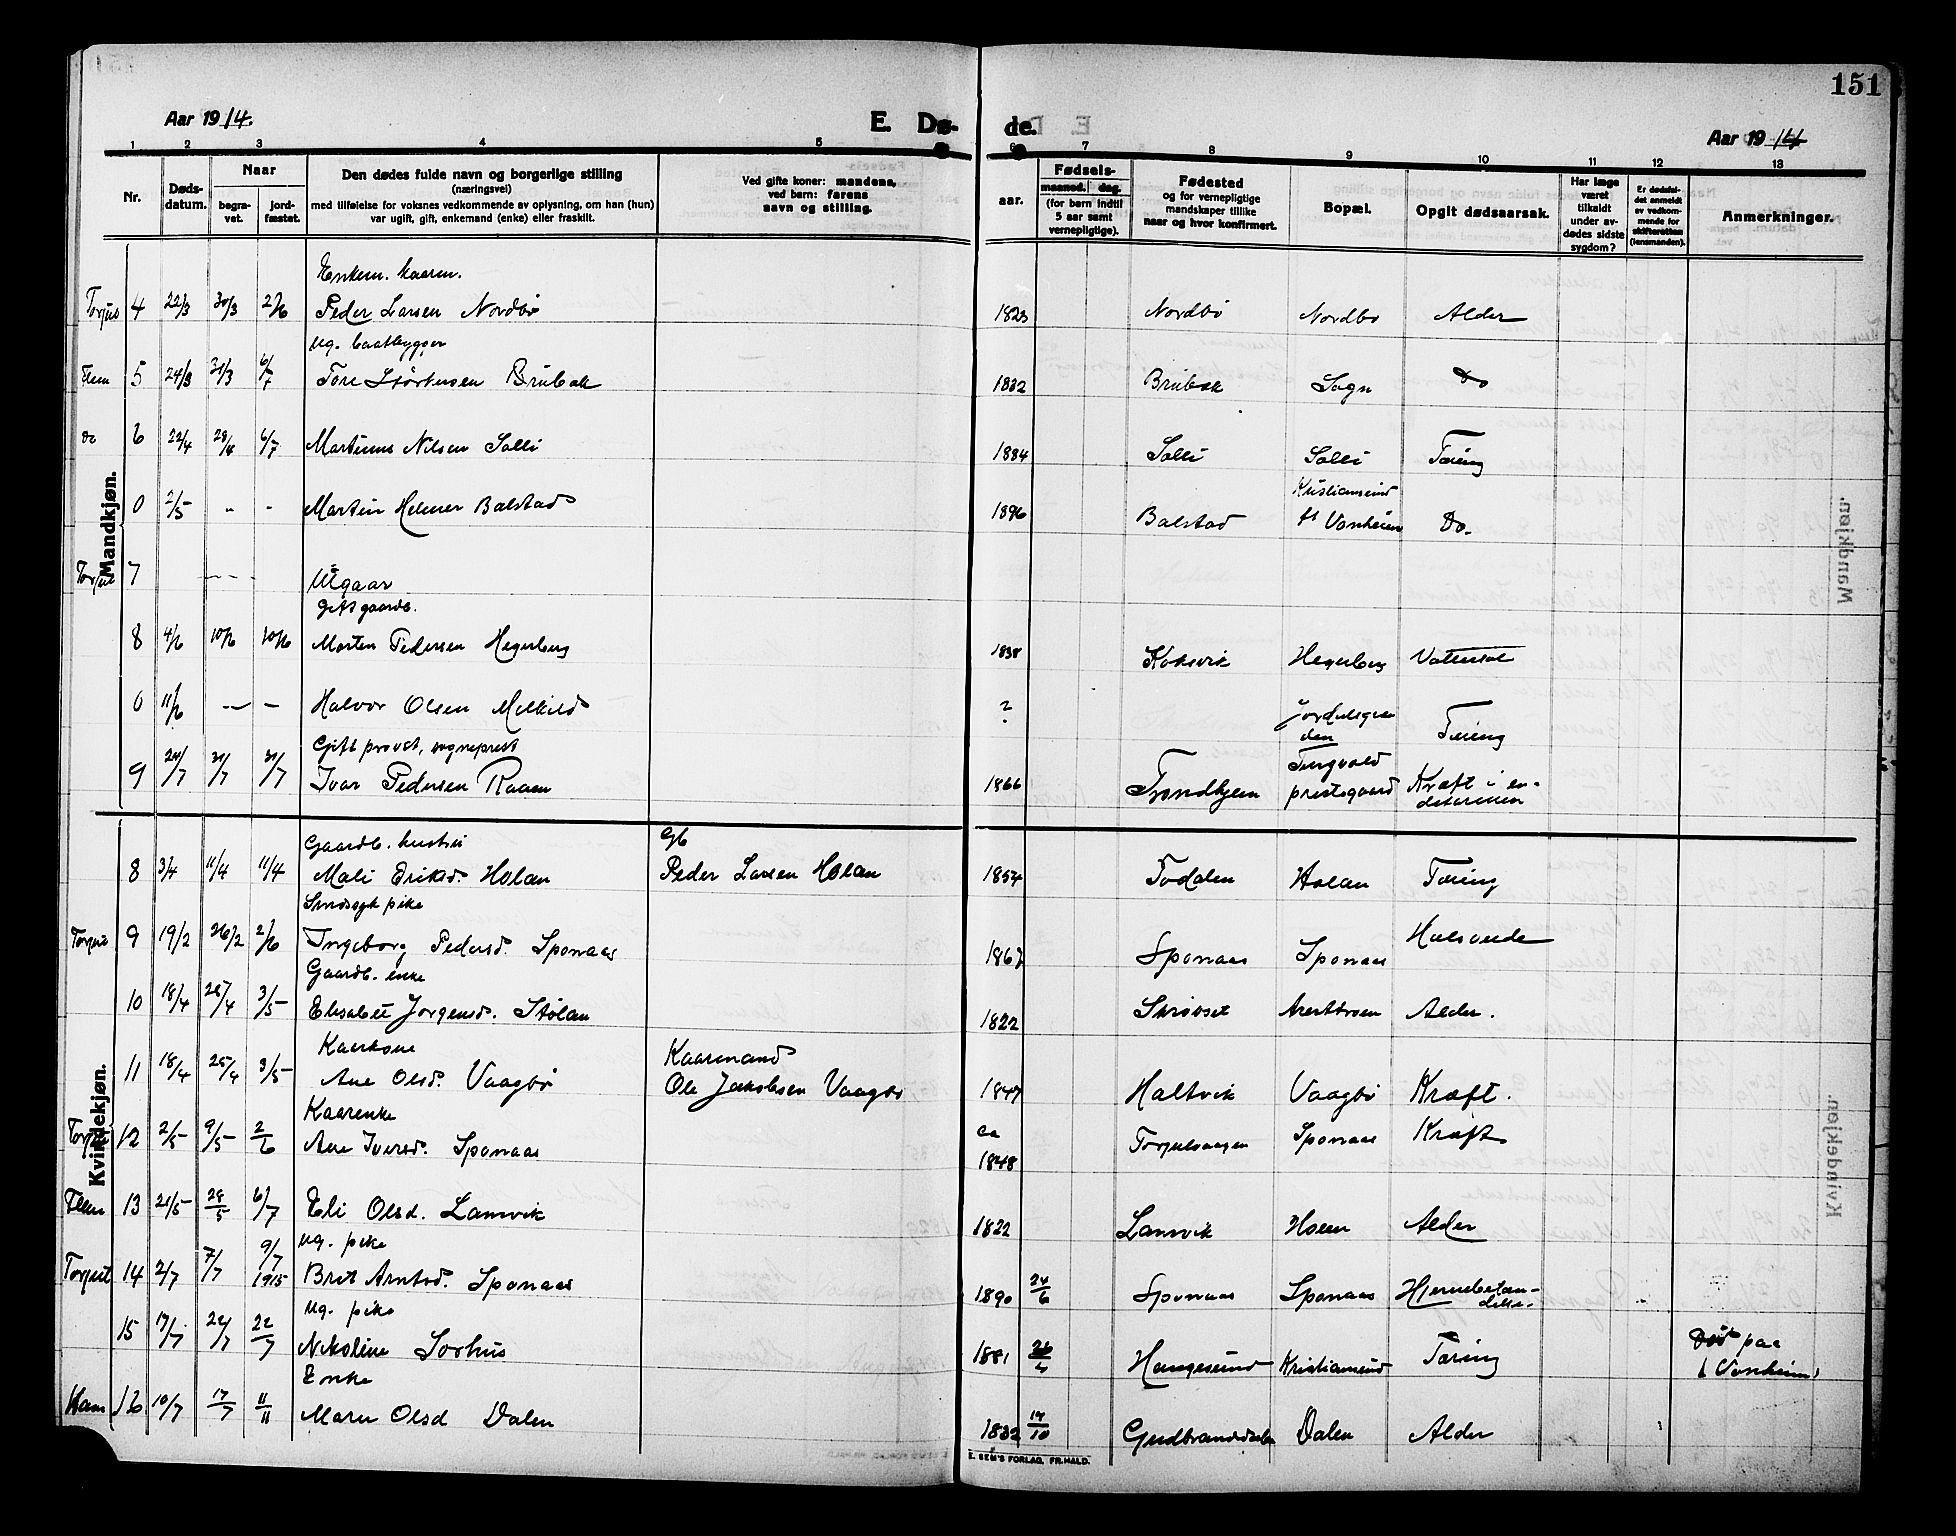 151
Aar 1914.
E. Dø- de.
Aar 1914
1 2 3 4 5 6 7 8 9 10 11 12 13
Nr.
Døds-
datum.
Naar
begra-
vet.
jord-
fæstet.
Den dødes fulde navn og borgerlige stilling
(næringsvei)
med tilføielse for voksnes vedkommende av oplysning, om han (hun)
var ugift, gift, enkemand (enke) eller fraskilt.
Ved gifte koner: mandens,
ved børn: farens
navn og stilling.
aar.
Fødsels-
maaned. dag.
(for børn indtil
5 aar samt
vernepligtige).
Fødested
og for vernepligtige
mandskaper tillike
naar og hvor konfirmert.
Bopæl.
Opgit dødsaarsak.
Har læge
været
tilkaldt
under av-
dødes sidste
sygdom?
Er dødsfal-
det anmeldt
av vedkom-
mende for
skifteretten
(lensmanden).
Anmerkninger.
Mandkjøn.
Enkem. kaarm.
4 22/3 30/3 2/6 Peder Larsen Nordbø 1823 Nordbø Nordbø Alder
ug. baatbygger
5 24/3 31/3 6/7 Tore Brubak 1832 Brubak Sogn Do
do 6 22/4 28/4 6/7 Martinus Nilsen Solli 1884 Solli Solli Tæring
Kristiansund
0 2/5 - - Martin Helmer Bolstad 1896 Bolstad Do.
7 - - - - Utgaar
Gift gaardb.
8 4/6 10/6 10/6 Morten Pedersen Hegerberg 1838 Koksvik Hegerberg Vattersot
0 11/6 - - Halvor Olsen Melkild ? Tæring
Gift provst, sogneprest Tingvold
9 24/7 31/7 31/7 Ivar Pedersen Raaen 1866 Trondhjem prestegaard Kræft i en-
Kvindekjøn.
Gaardb. hustru Gb
8 3/4 11/4 11/4 Mali Eriksd. Holan Peder Larsen Holan 1854 Todalen Holan Tæring
Sindssyk pike
9 19/2 26/2 2/6 Ingeborg Pedersd. Sponaas 1867 Sponaas Sponaas
Gaardb. enke
10 18/4 28/4 3/5 Elisabet Jørgensd. Stølan 1822 Alder.
Kaarkone Kaarmand
11 18/4 25/4 3/5 Ane Olsd. Vaagbø Ole Jakobsen Vaagbø 1847 Holtvik Vaagbø Kræft.
Kaarenke ca
12 2/5 9/5 2/6 Ane Iversd. Sponaas 1848 Torjulvaagen Sponaas Kræft
Flem 13 21/5 28/5 6/7 Eli Olsd. Lamvik 1822 Lamvik Alder
ug. pike
14 2/7 7/7 9/7 1915 Brit Arntsd. Sponaas 1890 24/6 Sponaas Sponaas Hjernebetæn-
delse.
ug. pike
15 17/7 22/7 22/7 Nikoline Sorhus 1881 Kristiansund Tæring Død paa
Enke
16 10/7 17/7 11/11 Maren Olsd Dalen 1832 14/10 Gudbrandsdalen Dalen Alder
E. SEM'S FORLAG, FR.HALD.